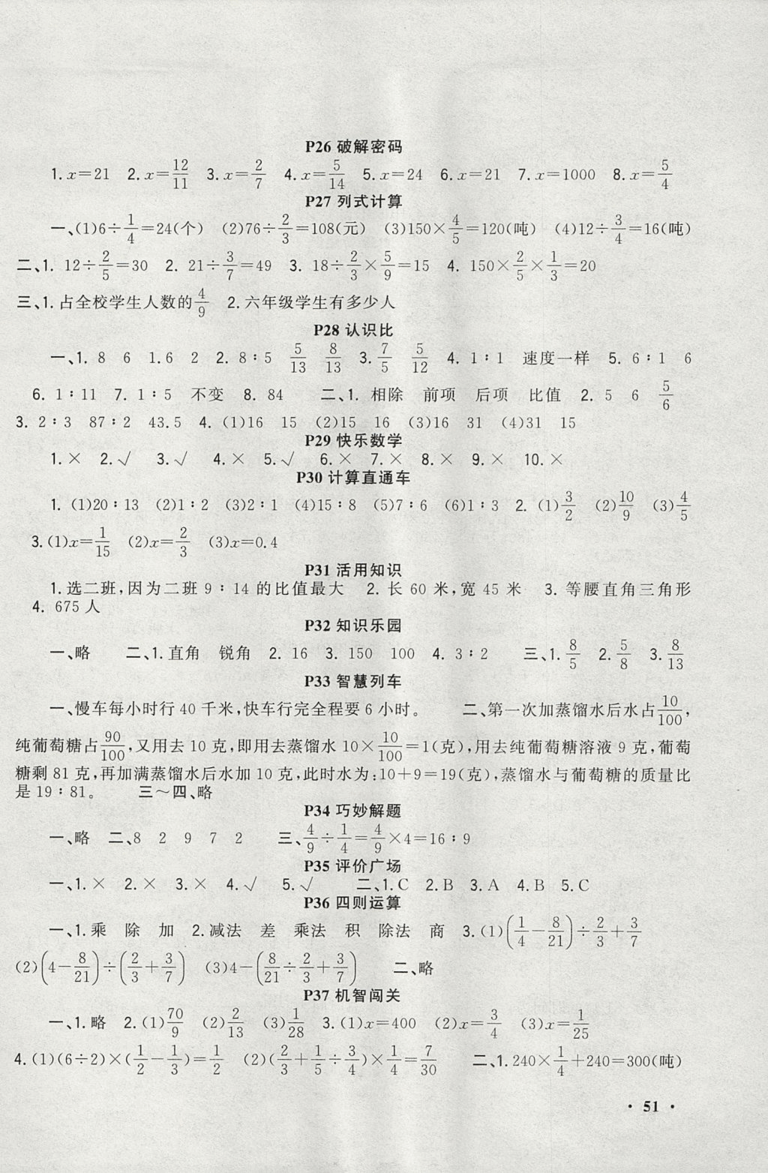 P26 破解密码
1. x=21 2. x=12/11 3. x=2/7 4. x=5/14 5. x=24 6. x=21 7. x=1000 8. x=5/4
P27 列式计算
一、(1)6÷1/4=24(个) (2)76÷2/3=108(元) (3)150×4/5=120(吨) (4)12÷3/4=16(吨)
二、1. 12÷2/5=30 2. 21÷3/7=49 3. 18÷2/3×5/9=15 4. 150×2/5×1/3=20
三、1. 占全校学生人数的4/9 2. 六年级学生有多少人
P28 认识比
一、1. 8 6 1.6 2 2. 8∶5 5/13 8/13 3. 7/5 5/12 4. 1∶1 速度一样 5. 6∶1 6
6. 1∶11 7. 1∶5 不变 8. 84 二、1. 相除 前项 后项 比值 2. 5 6 5/6
3. 2∶3 87∶2 43.5 4. (1)16 15 (2)15 16 (3)16 31 (4)31 15
P29 快乐数学
1. × 2. √ 3. √ 4. × 5. √ 6. × 7. × 8. × 9. × 10. ×
P30 计算直通车
1. (1)20∶13 (2)1∶2 (3)2∶1 (4)15∶8 (5)7∶6 (6)1∶3 2. (1)3/2 (2)10/9 (3)4/5
3. (1)x=1/15 (2)x=2/3 (3)x=0.4
P31 活用知识
1. 选二班,因为二班 9∶14 的比值最大 2. 长 60 米,宽 45 米 3. 等腰直角三角形
4. 675 人
P32 知识乐园
一、略 二、1. 直角 锐角 2. 16 3. 150 100 4. 3∶2 三、1. 8/5 2. 5/8 3. 8/13
P33 智慧列车
一、慢车每小时行 40 千米,快车行完全程要 6 小时。 二、第一次加蒸馏水后水占10/100,
纯葡萄糖占90/100,又用去 10 克,即用去蒸馏水 10×10/100=1(克),用去纯葡萄糖溶液 9 克,葡萄
糖剩 81 克,再加满蒸馏水后水加 10 克,此时水为:10+9=19(克),蒸馏水与葡萄糖的质量比
是 19∶81。 三～四、略
P34 巧妙解题
一、略 二、8 2 9 7 2 三、4/9÷1/4=4/9×4=16∶9
P35 评价广场
一、1. × 2. × 3. × 4. √ 5. √ 二、1. C 2. B 3. A 4. B 5. C
P36 四则运算
一、1. 乘 除 加 2. 减法 差 乘法 积 除法 商 3. (1)(1/4−8/21)÷2/3+3/7
(2)(4−8/21)÷(2/3+3/7) (3)4−(8/21÷2/3+3/7) 二、略
P37 机智闯关
一、1. 略 2. (1)70/9 (2)2/13 (3)1/28 3. (1)x=400 (2)x=3/4 (3)x=1/25
4. (1)(6÷2)×(1/2−1/3)=1/2 (2)(2/3+1/5÷3/4)×1/4=7/30 二、1. 240×1/4+240=300(吨)
· 51 ·